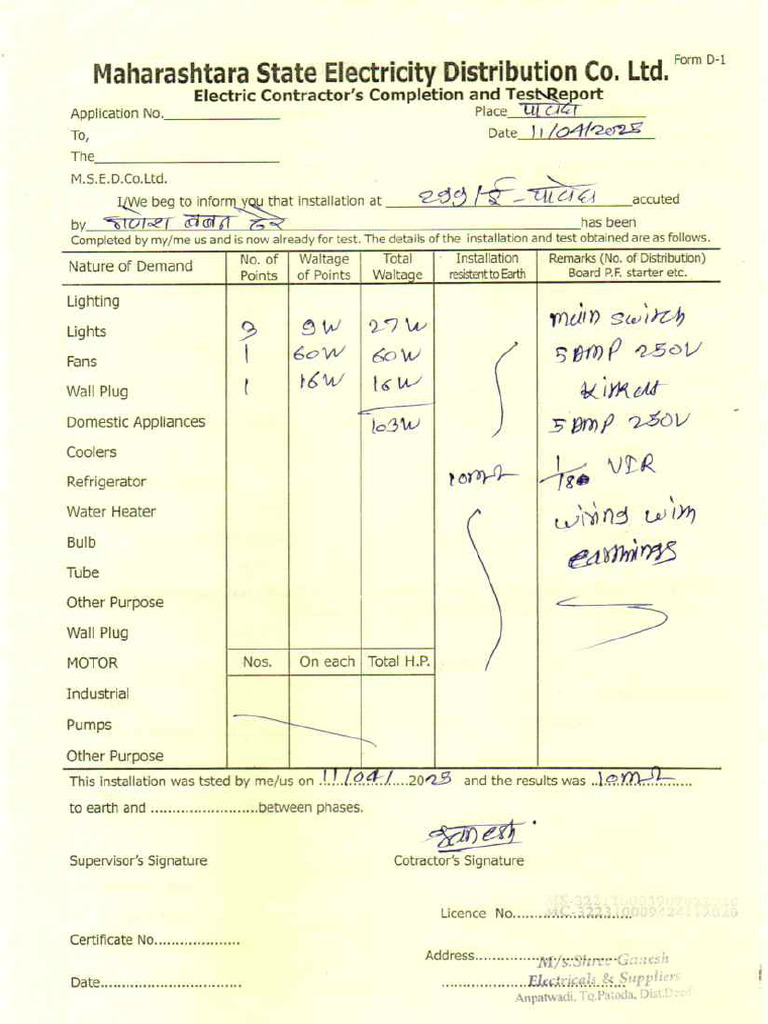 Form D-1
Maharashtara State Electricity Distribution Co. Ltd.
Electric Contractor's Completion and Test Report
Application No. Place पाटोदा
To, Date 11/04/2025
The
M.S.E.D.Co.Ltd.
I/We beg to inform you that installation at 299/ई-पाटोदा accuted
by गणेश बबन ढेरे has been
Completed by my/me us and is now already for test. The details of the installation and test obtained are as follows.
Nature of Demand No. of Points Waltage of Points Total Waltage Installation resistent to Earth Remarks (No. of Distribution) Board P.F. starter etc.
Lighting
Lights 3 9W 27W main switch
Fans 1 60W 60W 5 AMP 250V
Wall Plug 1 16W 16W kitkat
Domestic Appliances 103W 5 AMP 250V
Coolers
Refrigerator 10mΩ 1/18 VIR
Water Heater wiring with
Bulb earthings
Tube
Other Purpose
Wall Plug
MOTOR Nos. On each Total H.P.
Industrial
Pumps
Other Purpose
This installation was tsted by me/us on 11/04/2025 and the results was 10mΩ
to earth and ........................between phases.
Ganesh
Supervisor's Signature Cotractor's Signature
Licence No.
Certificate No....................
Address
M/s.Shree Ganesh
Electricals & Suppliers
Date................................
Anpatwadi, Tq.Patoda, Dist.Beed